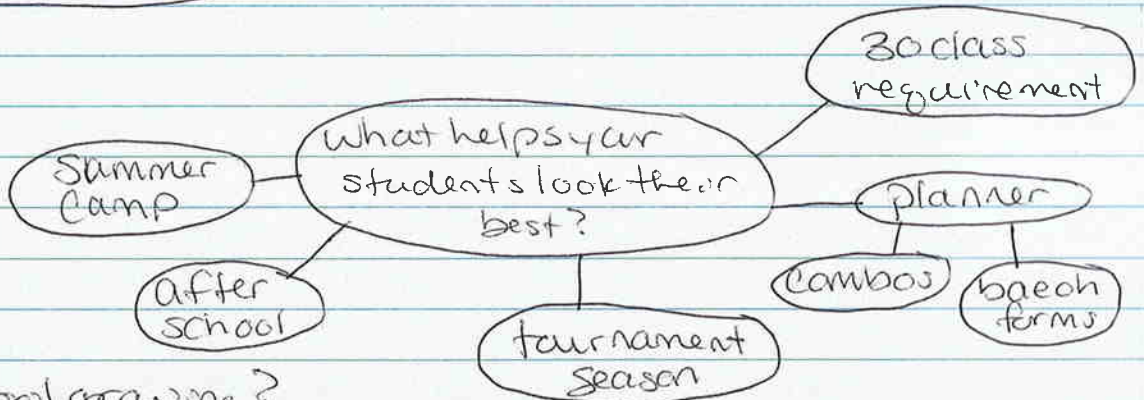 30 class
requirement
what helps your
students look their
best?
summer
camp
planner
combos
baeoh
forms
after
school
tournament
season